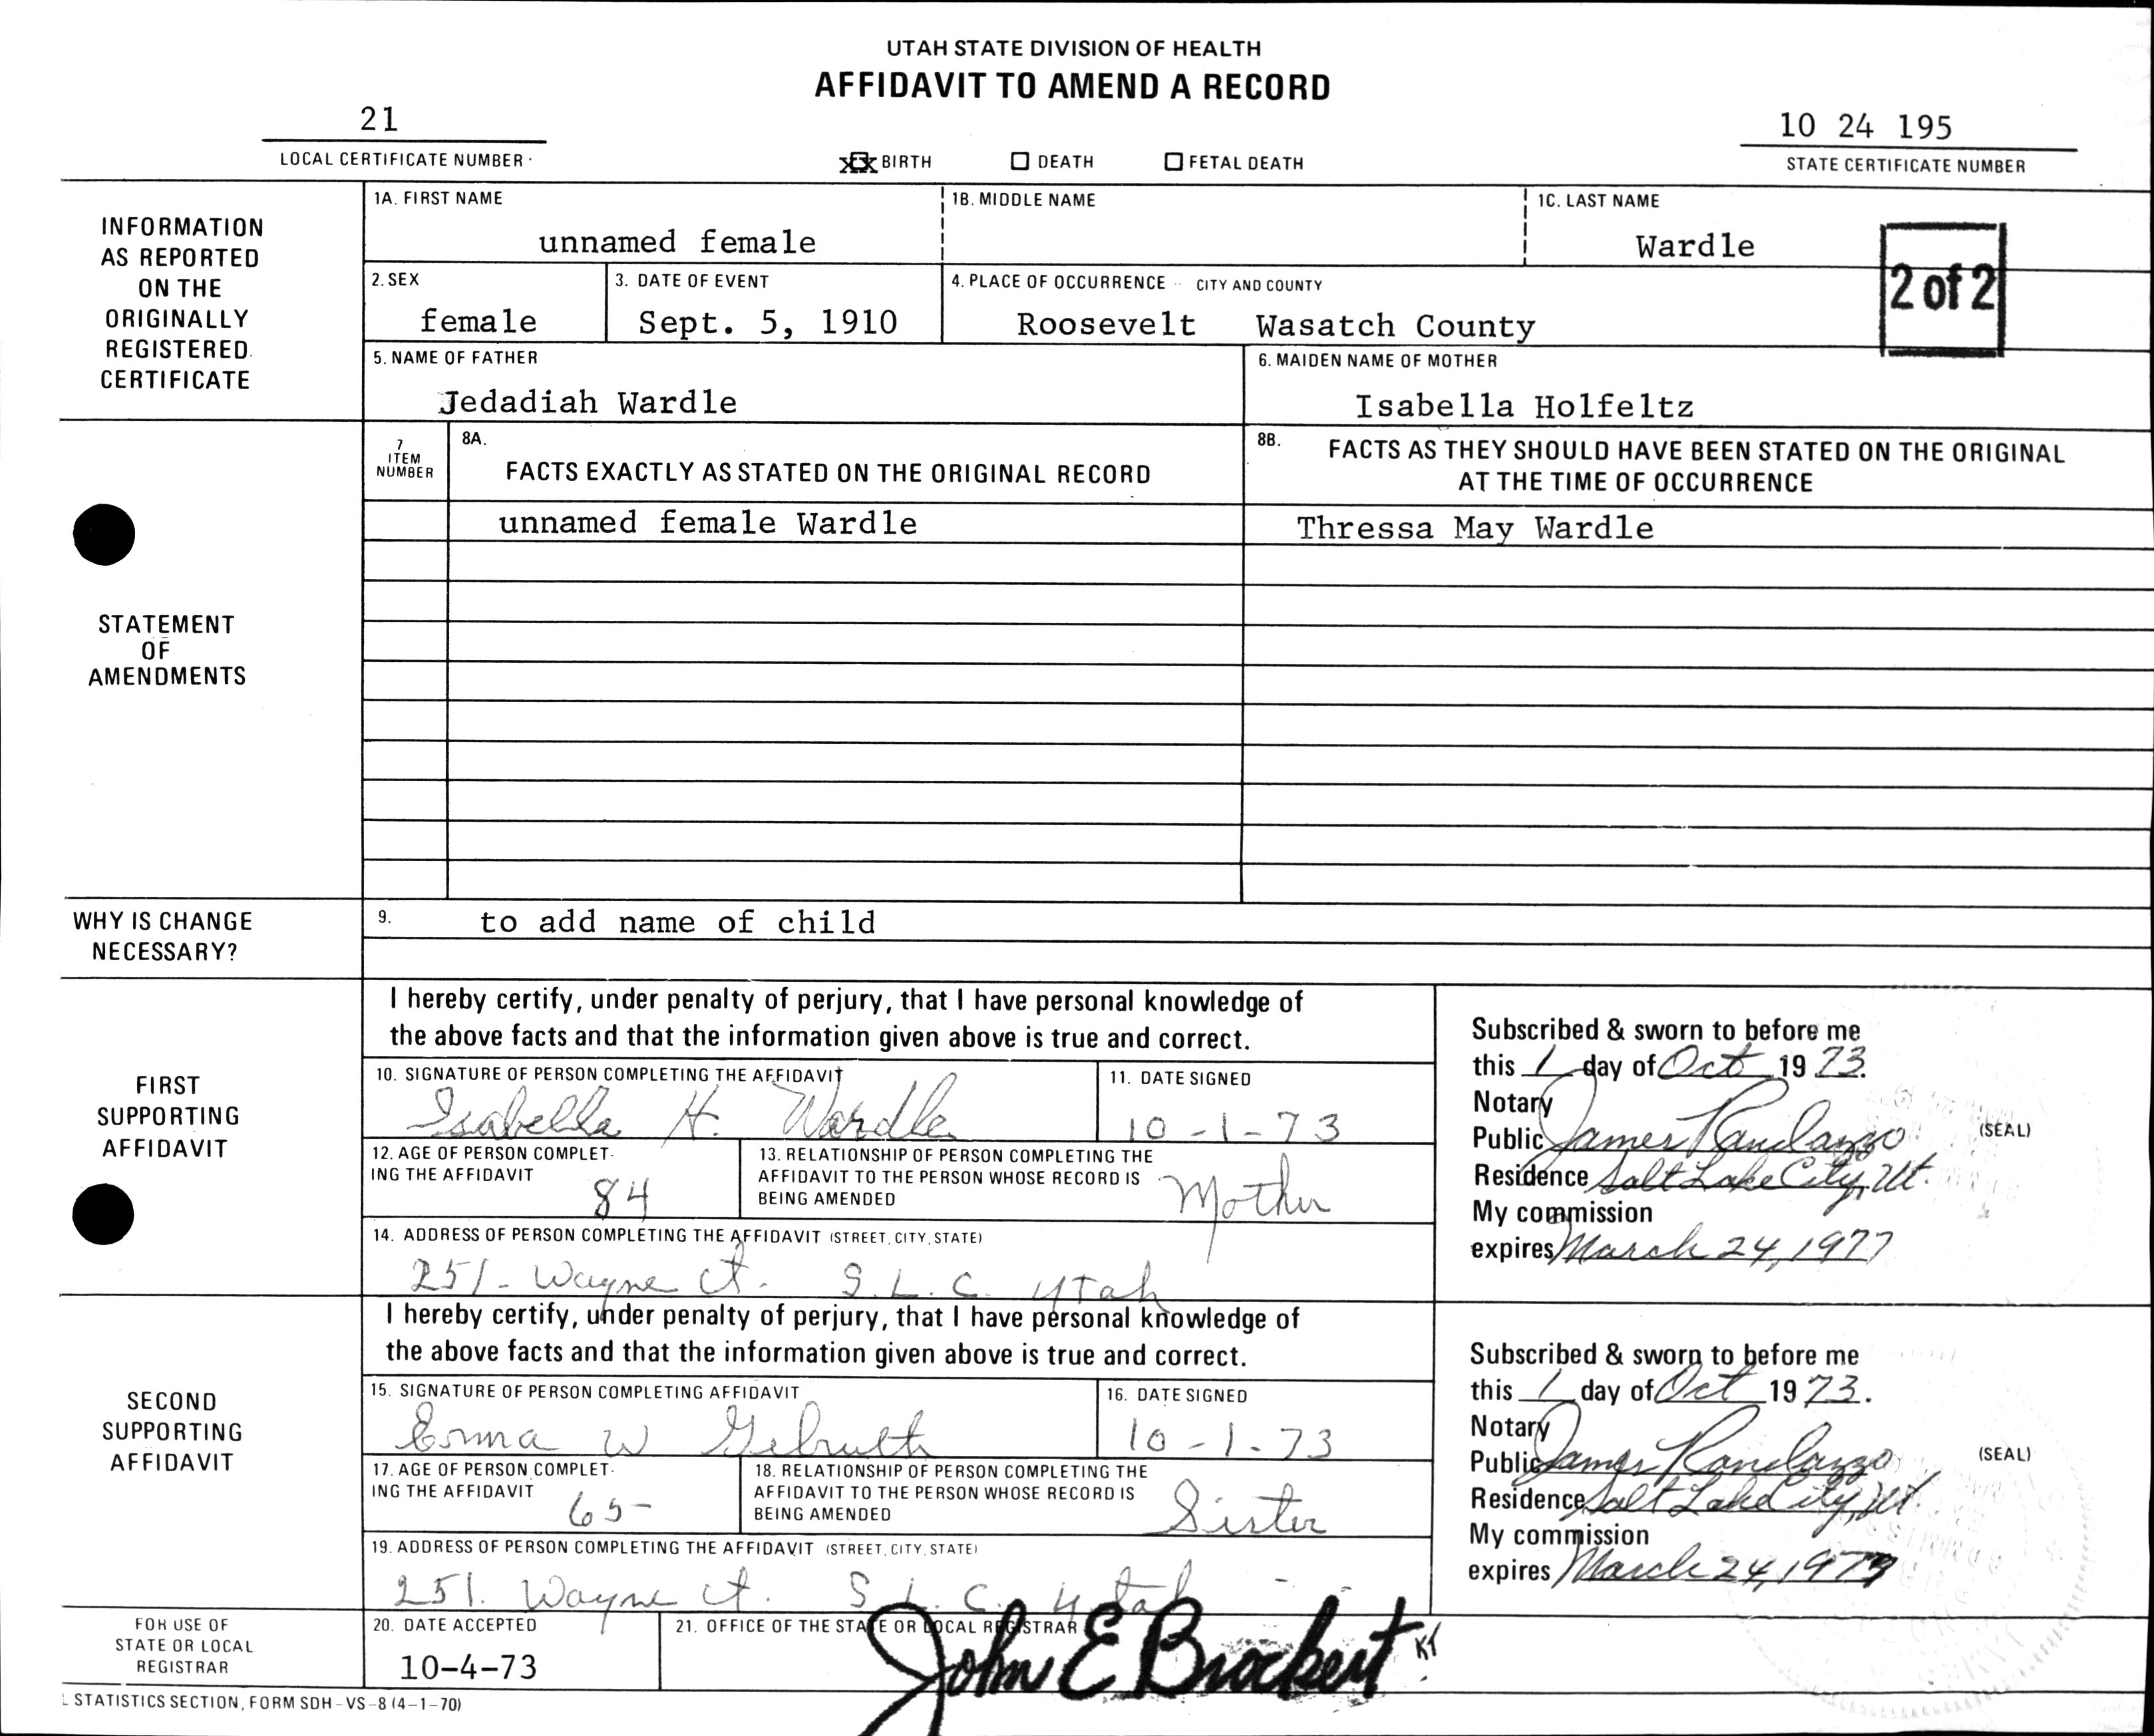 UTAH STATE DIVISION OF HEALTH
AFFIDAVIT TO AMEND A RECORD
21
LOCAL CERTIFICATE NUMBER
xx BIRTH DEATH FETAL DEATH
10 24 195
STATE CERTIFICATE NUMBER
INFORMATION
AS REPORTED
ON THE
ORIGINALLY
REGISTERED
CERTIFICATE
1A. FIRST NAME
unnamed female
1B. MIDDLE NAME
1C. LAST NAME
Wardle
2 of 2
2. SEX
female
3. DATE OF EVENT
Sept. 5, 1910
4. PLACE OF OCCURRENCE CITY AND COUNTY
Roosevelt Wasatch County
5. NAME OF FATHER
Jedadiah Wardle
6. MAIDEN NAME OF MOTHER
Isabella Holfeltz
STATEMENT
OF
AMENDMENTS
7
ITEM
NUMBER
8A.
FACTS EXACTLY AS STATED ON THE ORIGINAL RECORD
8B. FACTS AS THEY SHOULD HAVE BEEN STATED ON THE ORIGINAL
AT THE TIME OF OCCURRENCE
unnamed female Wardle
Thressa May Wardle
WHY IS CHANGE
NECESSARY?
9. to add name of child
FIRST
SUPPORTING
AFFIDAVIT
I hereby certify, under penalty of perjury, that I have personal knowledge of
the above facts and that the information given above is true and correct.
10. SIGNATURE OF PERSON COMPLETING THE AFFIDAVIT
Isabella H. Wardle
11. DATE SIGNED
10-1-73
12. AGE OF PERSON COMPLET-
ING THE AFFIDAVIT
84
13. RELATIONSHIP OF PERSON COMPLETING THE
AFFIDAVIT TO THE PERSON WHOSE RECORD IS
BEING AMENDED
Mother
14. ADDRESS OF PERSON COMPLETING THE AFFIDAVIT (STREET, CITY, STATE)
251- Wayne Ct. S.L.C. Utah
Subscribed & sworn to before me
this 1 day of Oct 1973.
Notary
Public James Randazzo (SEAL)
Residence Salt Lake City, Ut.
My commission
expires March 24, 1977
SECOND
SUPPORTING
AFFIDAVIT
I hereby certify, under penalty of perjury, that I have personal knowledge of
the above facts and that the information given above is true and correct.
15. SIGNATURE OF PERSON COMPLETING AFFIDAVIT
Erma W
16. DATE SIGNED
10-1-73
17. AGE OF PERSON COMPLET-
ING THE AFFIDAVIT
65
18. RELATIONSHIP OF PERSON COMPLETING THE
AFFIDAVIT TO THE PERSON WHOSE RECORD IS
BEING AMENDED
Sister
19. ADDRESS OF PERSON COMPLETING THE AFFIDAVIT (STREET, CITY, STATE)
251. Wayne Ct. S.L.C. Utah
Subscribed & sworn to before me
this 1 day of Oct 1973.
Notary
Public James Randazzo (SEAL)
Residence Salt Lake City, Ut.
My commission
expires March 24, 1977
FOR USE OF
STATE OR LOCAL
REGISTRAR
20. DATE ACCEPTED
10-4-73
21. OFFICE OF THE STATE OR LOCAL REGISTRAR
John E Brockert KT
L STATISTICS SECTION, FORM SDH-VS-8 (4-1-70)